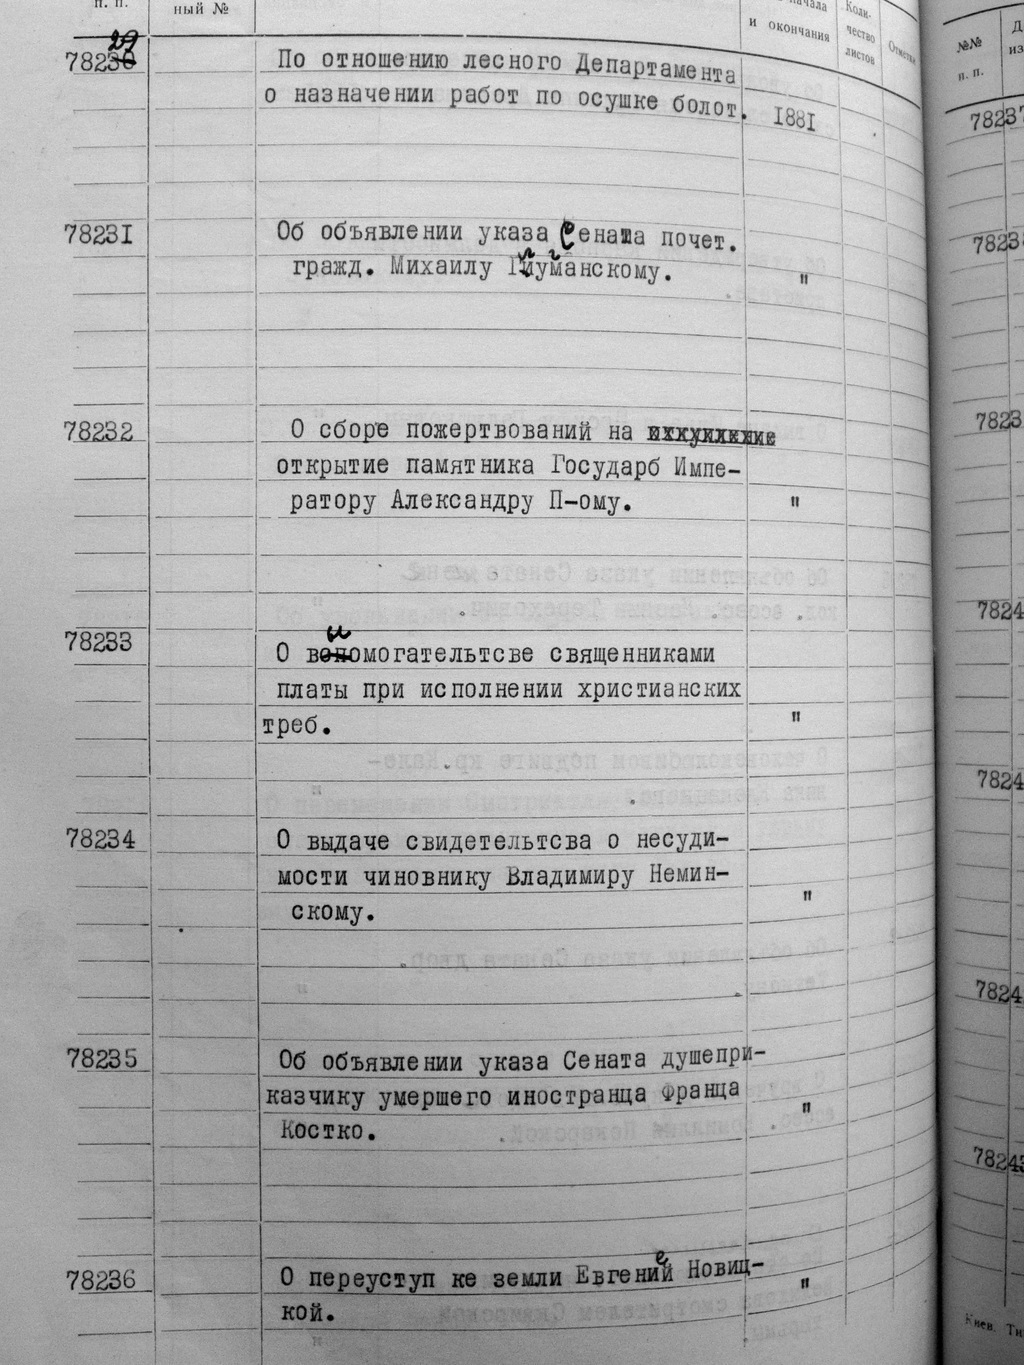 п. п.
ный №
начала
и окончания
Коли-
чество
листов
Отметки
7823029
По отношению лесного Департамента
о назначении работ по осушке болот.
1881
78231
Об объявлении указа Сената почет.
гражд. Михаилу
"
78232
О сборе пожертвований на
открытие памятника Государб Импе-
ратору Александру П-ому.
"
78233
О вымогательтсве священниками
платы при исполнении христианских
треб.
"
78234
О выдаче свидетельтсва о несуди-
мости чиновнику Владимиру Немин-
скому.
"
78235
Об объявлении указа Сената душепри-
казчику умершего иностранца Франца
Костко.
"
78236
О переуступ ке земли Евгение Новиц-
кой.
"
№№
п. п.
78237
Киев. Ти